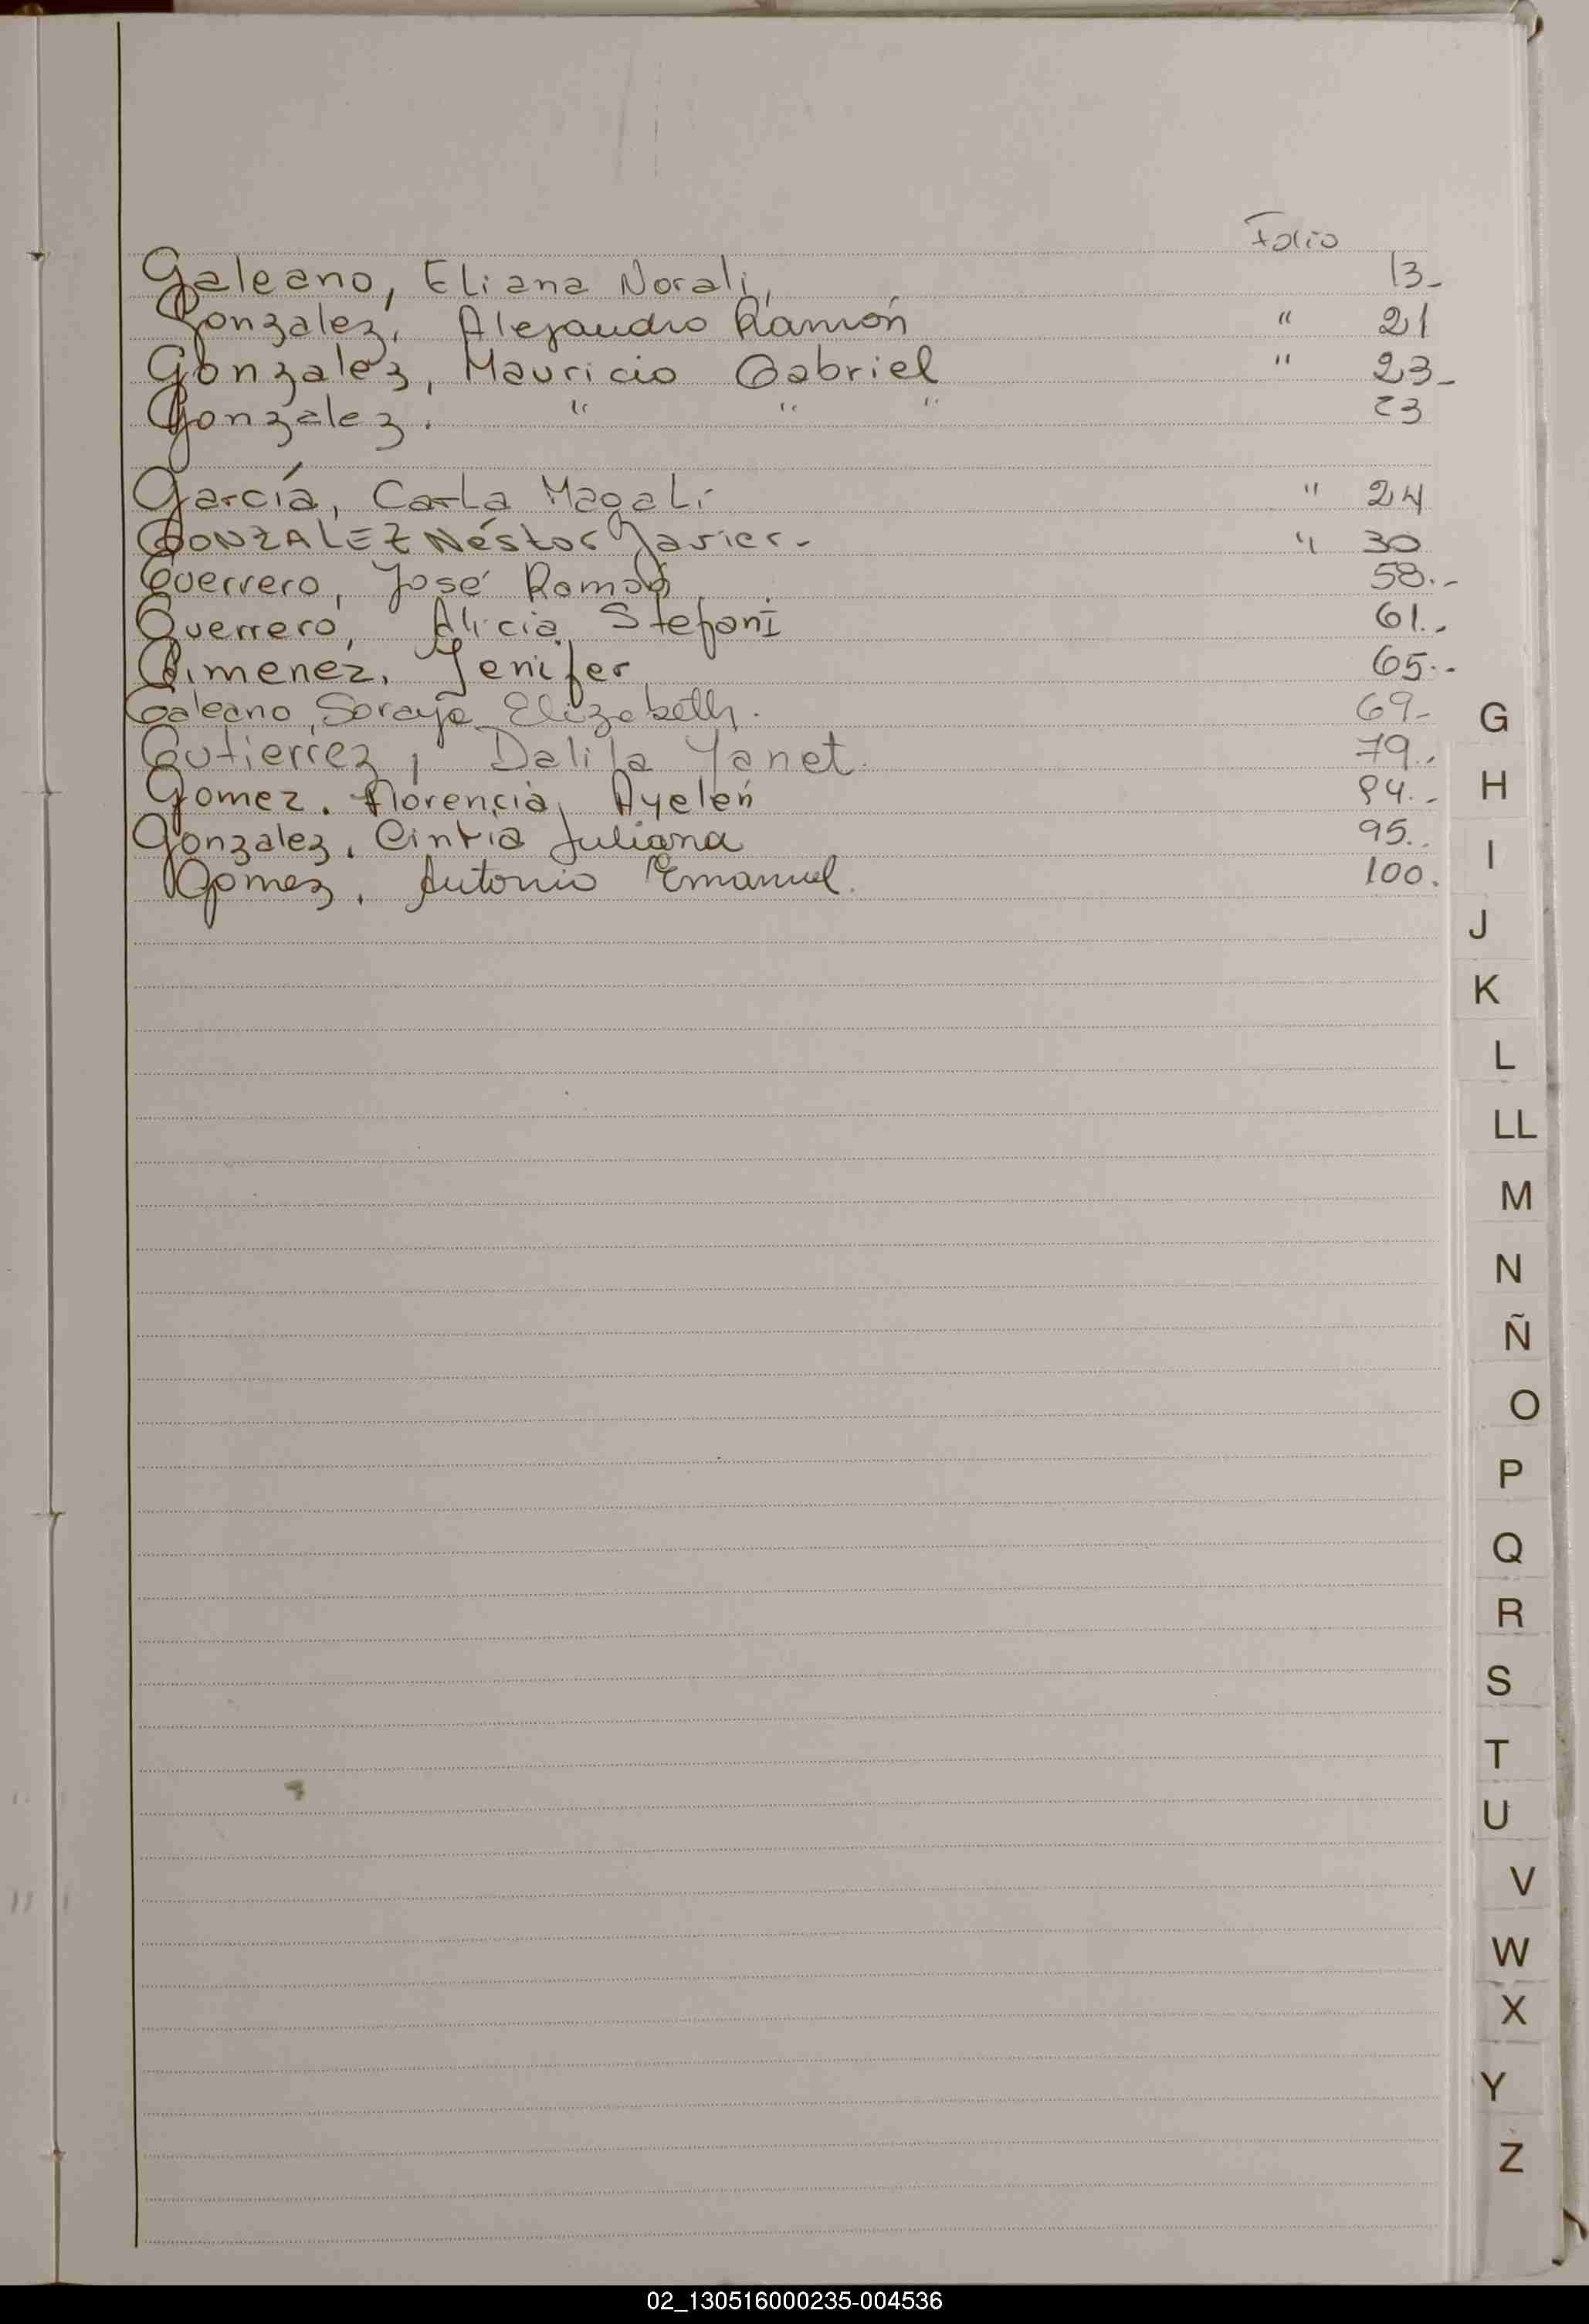 Folio
Galeano, Eliana Norali, 13-
Gonzalez, Alejandro Ramón " 21
Gonzalez, Mauricio Gabriel " 23-
Gonzalez. " " " 23
García, Carla Magali " 24
GONZALEZ Néstor Javier- " 30
Guerrero, José Ramón 58.-
Guerrero, Alicia Stefani 61.-
Gimenez, Jenifer 65.-
Galeano, Soraya Elizabeth. 69-
Gutierrez, Dalila Yanet. 79.,
Gomez. Florencia, Ayelén 94.-
Gonzalez, Cintia Juliana 95..
Gomez, Antonio Emanuel. 100.
G
H
I
J
K
L
LL
M
N
Ñ
O
P
Q
R
S
T
U
V
W
X
Y
Z
02_130516000235-004536